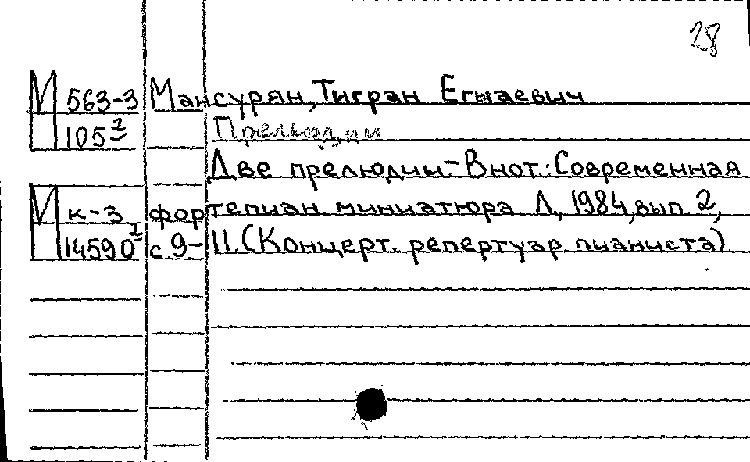 28
М 563-3 Мансурян, Тигран Егиаевич
105² Прелюдии
Две прелюдии.-В нот.: Современная
М к-3 фортепиан. миниатюра Л., 1984, вып. 2,
14590² с 9-11. (Концерт. репертуар пианиста)